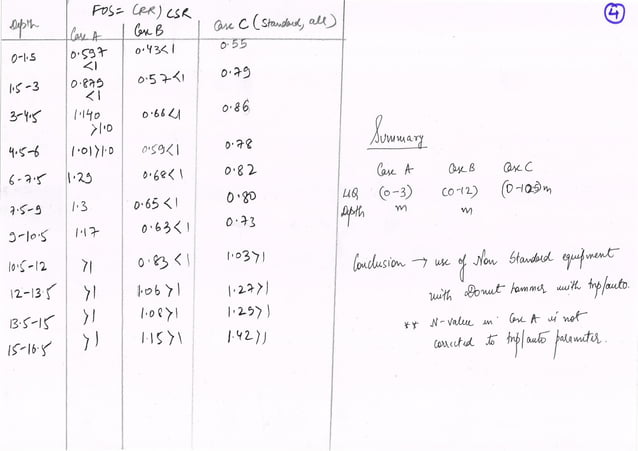 4
FOS = CRR/CSR
Depth Case A Case B Case C (Standard, all)
0-1.5 0.597 <1 0.43<1 0.55
1.5-3 0.879 <1 0.57<1 0.79
3-4.5 1.140 >1.0 0.66<1 0.86
4.5-6 1.01>1.0 0.59<1 0.78
6-7.5 1.29 0.68<1 0.82
7.5-9 1.3 0.65<1 0.80
9-10.5 1.17 0.63<1 0.73
10.5-12 >1 0.83<1 1.03>1
12-13.5 >1 1.06>1 1.27>1
13.5-15 >1 1.08>1 1.29>1
15-16.5 >1 1.15>1 1.42>1
Summary
Case A Case B Case C
LIQ (0-3) (0-12) (0-10.5)m
Depth m m
Conclusion → use of Non Standard equipment
with Donut hammer with trip/auto.
** N-value in Case A is not
corrected to trip/auto parameter.